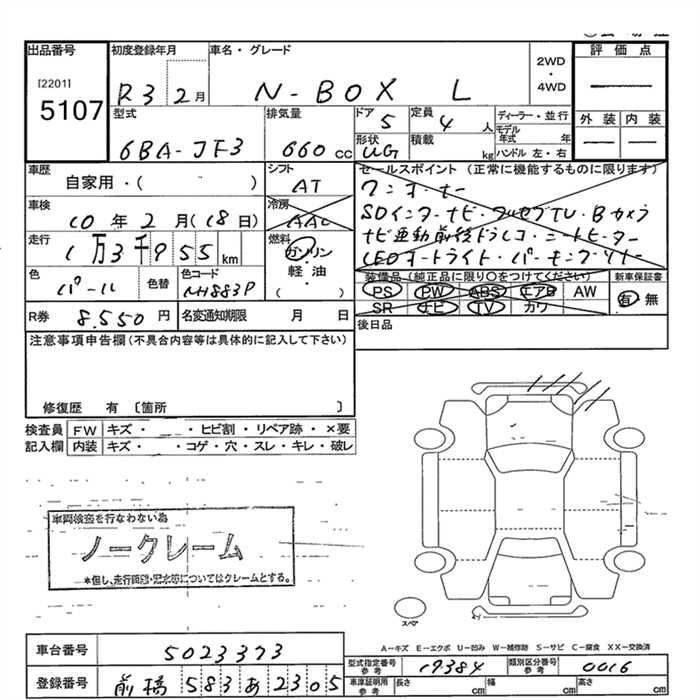 出品番号
[2201]
5107
初度登録年月
R3 2月
車名・グレード
N-BOX L
2WD
・
4WD
評価点
外装 内装
型式
6BA-JF3
排気量
660 cc
ドア
5
定員
4 人
形状
UG
積載
kg
ディーラー・並行
モデル年式 年
ハンドル 左・右
車歴
自家用・( )
シフト
AT
車検
10年2月(18日)
冷房
AAC
走行
1万3千955km
燃料
ガソリン
・
軽・油
( )
色
パール
色替
色コード
NH883P
R券
8.550 円
名変通知期限 月 日
セールスポイント(正常に機能するものに限ります)
ワンオーナー
SDインターナビ・フルセグTV・Bカメラ
ナビ連動前後ドラレコ・シートヒーター
LEDオートライト・パーキングソナー
装備品(純正品に限り○をつけてください)
PS PW ABS エアB AW
SR ナビ TV カワ
新車保証書
有 無
後日品
注意事項申告欄(不具合内容等は具体的に記入して下さい)
修復歴 有〔箇所 〕
検査員 FW キズ・ ・ヒビ割・リペア跡・×要
記入欄 内装 キズ・ ・コゲ・穴・スレ・キレ・破レ
車両検査を行なわない為
ノークレーム
*但し、走行距離・冠水等についてはクレームとする。
スペア
A-キズ E-エクボ U-凹み W-補修跡 S-サビ C-腐食 XX-交換済
車台番号
5023373
登録番号
前橋 583 あ 2305
型式指定番号
参考
19384
類別区分番号
参考
0016
車庫証明用
参考
長さ cm
幅 cm
高さ cm